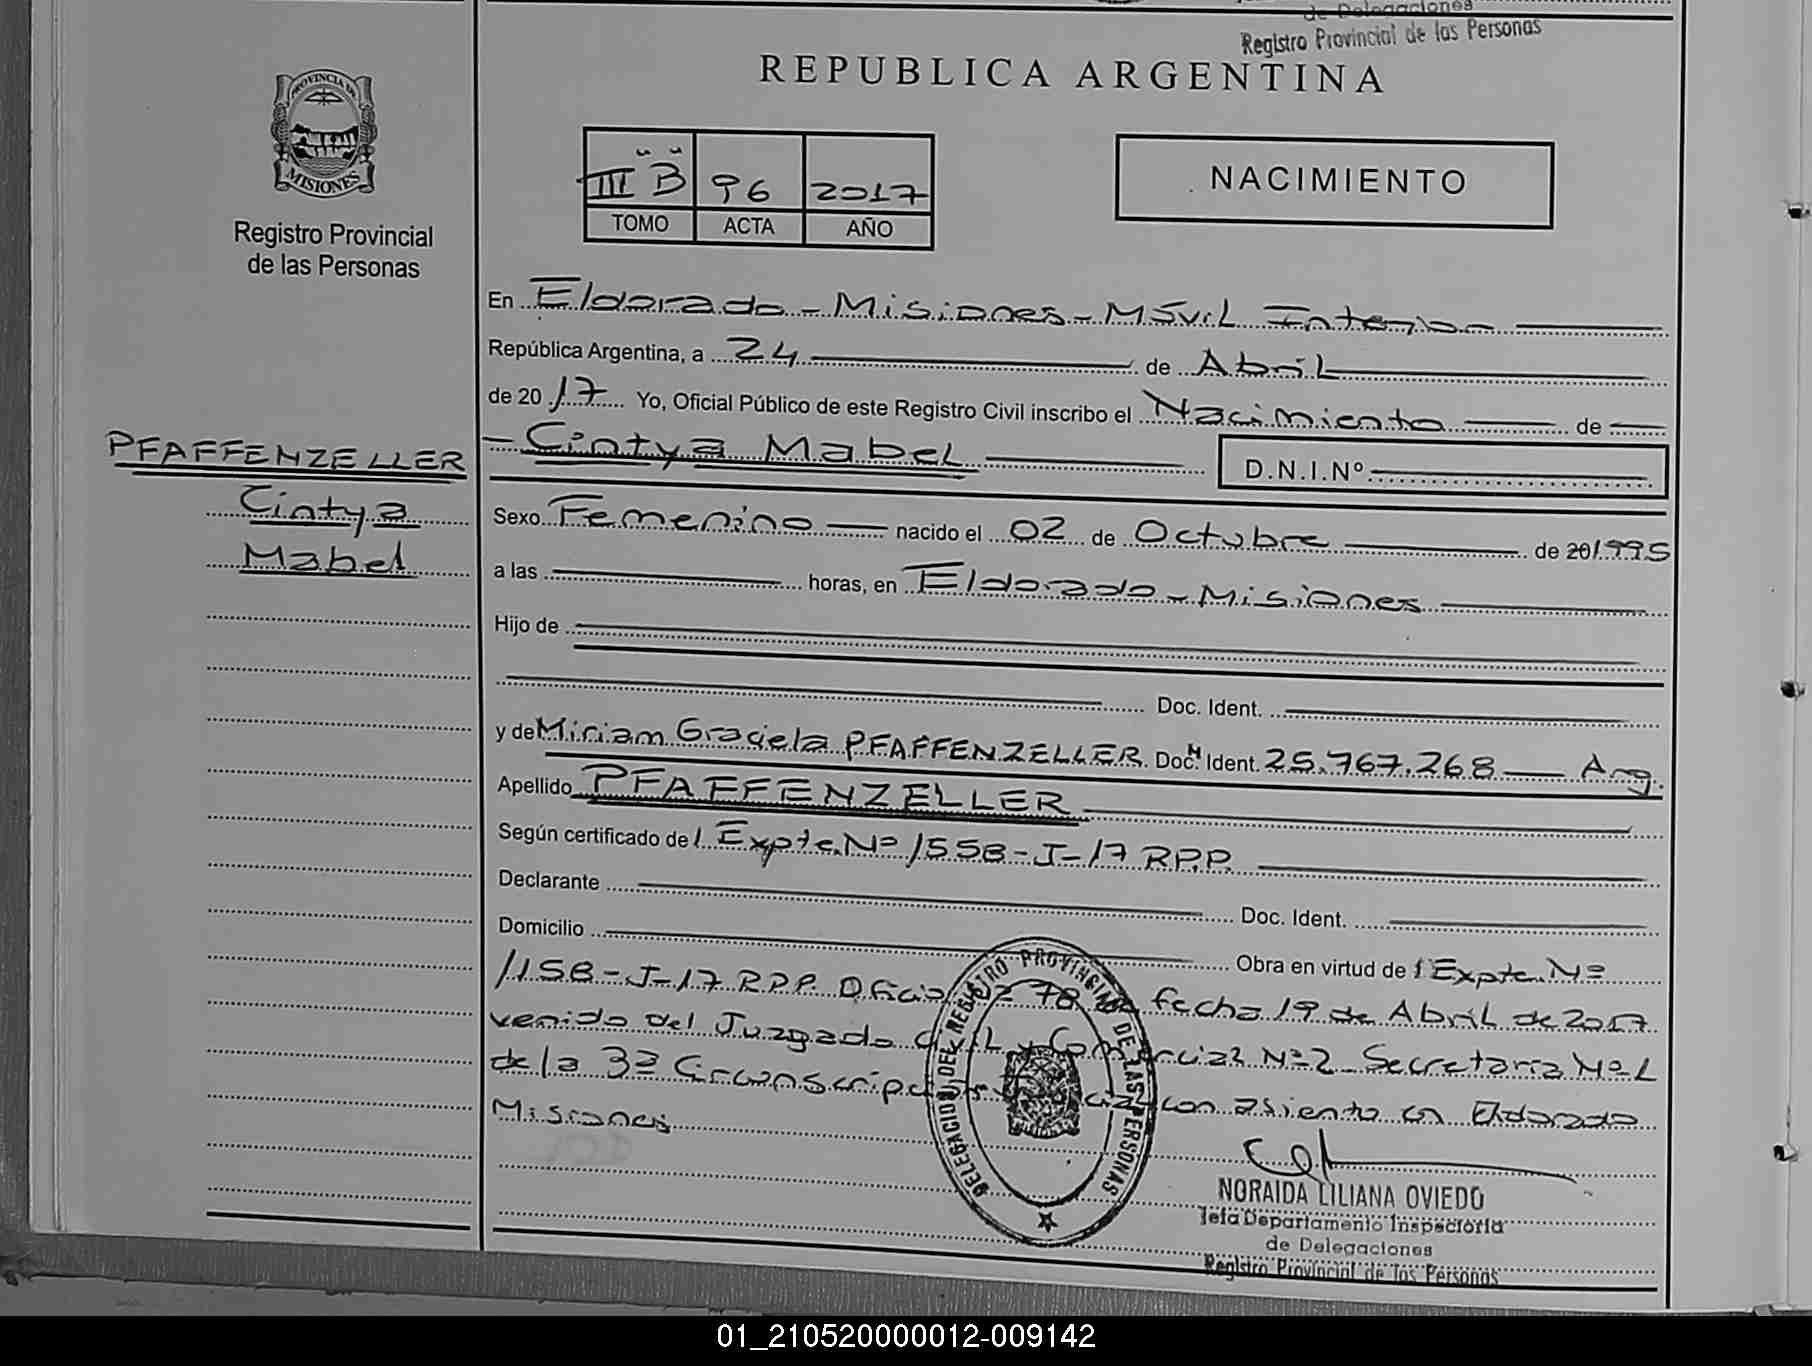 de Delegaciones
Registro Provincial de las Personas
REPUBLICA ARGENTINA
PROVINCIA DE
MISIONES
Registro Provincial
de las Personas
III "B" 96 2017
TOMO ACTA AÑO
NACIMIENTO
En Eldorado - Misiones - Móvil Interior
República Argentina, a 24 de Abril
de 2017 Yo, Oficial Público de este Registro Civil inscribo el Nacimiento de
PFAFFENZELLER
Cintya
Mabel
- Cintya Mabel D.N.I.Nº
Sexo Femenino nacido el 02 de Octubre de 201995
a las horas, en Eldorado - Misiones
Hijo de
Doc. Ident.
y de Miriam Graciela PFAFFENZELLER Doc. Ident. 25.767.268 Arg.
Apellido PFAFFENZELLER
Según certificado de Expte. Nº 1558-J-17 R.P.P.
Declarante Doc. Ident.
Domicilio Obra en virtud de Expte. Nº
1158-J-17 R.P.P. Oficio 78 fecha 19 de Abril de 2017
venido del Juzgado Civil y Comercial Nº 2 Secretaria Nº 1
de la 3ª Circunscripción Judicial con asiento en Eldorado
Misiones
DELEGACION DEL REGISTRO PROVINCIAL DE LAS PERSONAS
NORAIDA LILIANA OVIEDO
Jefa Departamento Inspectoria
de Delegaciones
Registro Provincial de las Personas
01_210520000012-009142